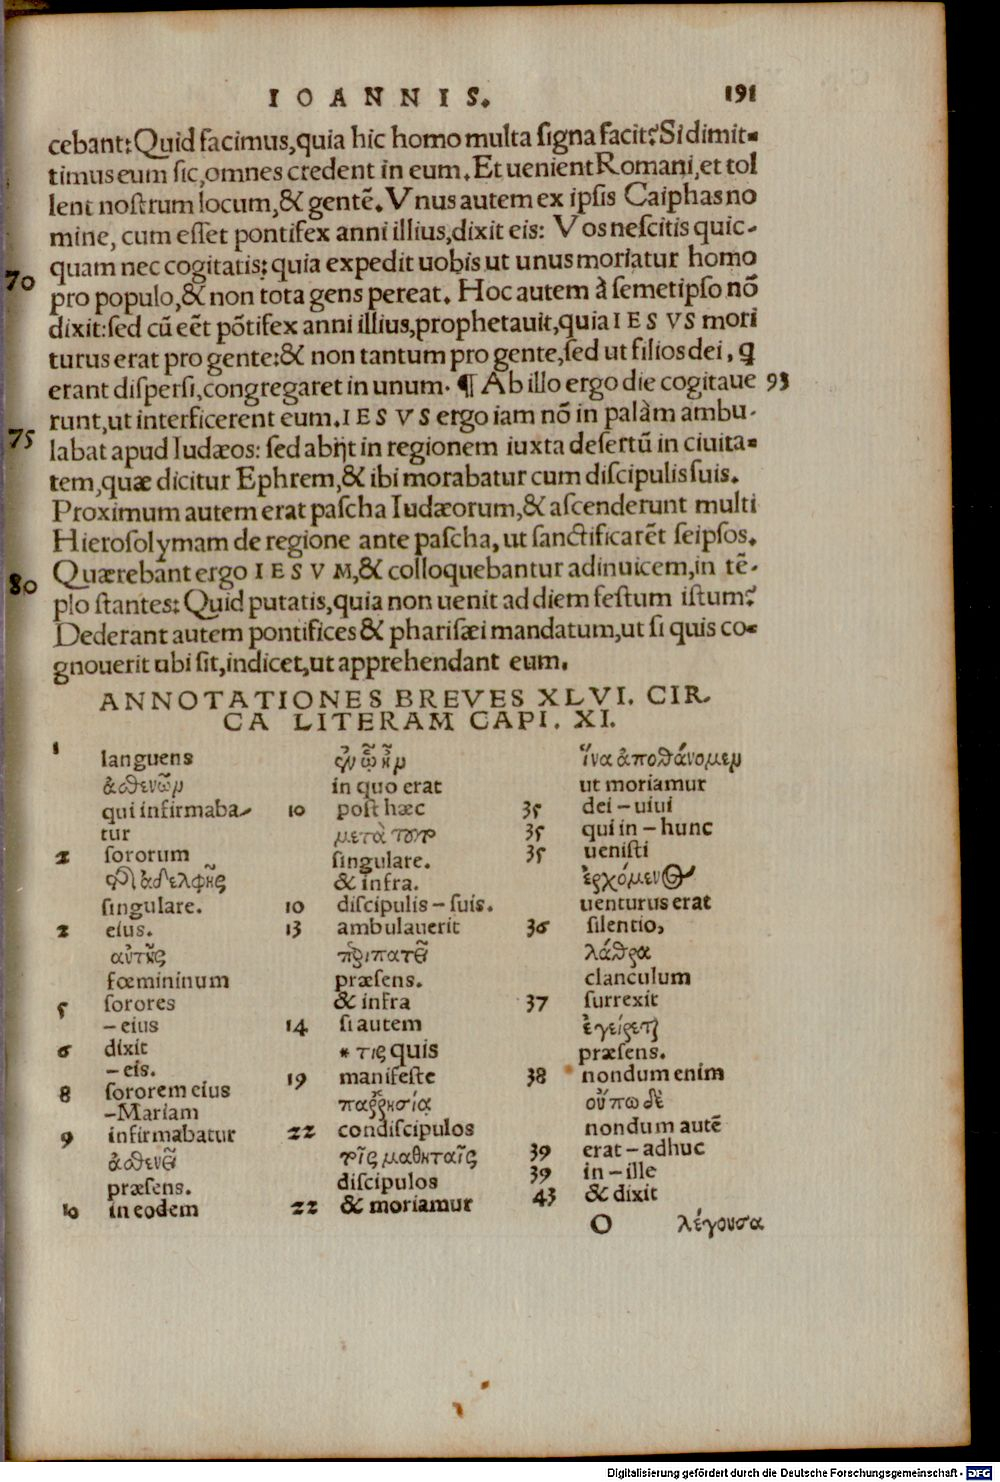 IOANNIS.
191
cebant: Quid facimus, quia hic homo multa signa facit? Si dimit-
timus eum sic, omnes credent in eum. Et uenient Romani, et tol
lent nostrum locum, & gentē. Vnus autem ex ipsis Caiphas no
mine, cum esset pontifex anni illius, dixit eis: Vos nescitis quic-
70 quam nec cogitatis: quia expedit uobis ut unus moriatur homo
pro populo, & non tota gens pereat. Hoc autem à semetipso nō
dixit: sed cū eēt pōtifex anni illius, prophetauit, quia IESVS mori
turus erat pro gente: & non tantum pro gente, sed ut filios dei, q̄
erant dispersi, congregaret in unum. ¶ Ab illo ergo die cogitaue 93
runt, ut interficerent eum. IESVS ergo iam nō in palàm ambu-
75 labat apud Iudæos: sed abijt in regionem iuxta desertū in ciuita-
tem, quæ dicitur Ephrem, & ibi morabatur cum discipulis suis.
Proximum autem erat pascha Iudæorum, & ascenderunt multi
Hierosolymam de regione ante pascha, ut sanctificarēt seipsos.
80 Quærebant ergo IESVM, & colloquebantur adinuicem, in tē-
plo stantes: Quid putatis, quia non uenit ad diem festum istum?
Dederant autem pontifices & pharisæi mandatum, ut si quis co-
gnouerit ubi sit, indicet, ut apprehendant eum.
ANNOTATIONES BREVES XLVI. CIR
CA LITERAM CAPI. XI.
1 languens
ἀσθενῶν
qui infirmaba-
tur
2 sororum
τῆς ἀδελφῆς
singulare.
2 eius.
αὐτῆς
fœmininum
5 sorores
– eius
6 dixit
– eis.
8 sororem eius
– Mariam
9 infirmabatur
ἀσθενεῖ
præsens.
10 in eodem
ἐν ᾧ ἦν
in quo erat
10 post hæc
μετὰ τοῦτο
singulare.
& infra.
10 discipulis – suis.
13 ambulauerit
περιπατεῖ
præsens.
& infra
14 si autem
* τις quis
19 manifeste
παρρησίᾳ
22 condiscipulos
τοῖς μαθηταῖς
discipulos
22 & moriamur
ἵνα ἀποθάνομεν
ut moriamur
35 dei – uiui
35 qui in – hunc
35 uenisti
ἐρχόμενος
uenturus erat
36 silentio,
λάθρα
clanculum
37 surrexit
ἐγείρεται
præsens.
38 nondum enim
οὔπω δὲ
nondum autē
39 erat – adhuc
39 in – ille
43 & dixit
O λέγουσα
Digitalisierung gefördert durch die Deutsche Forschungsgemeinschaft - DFG